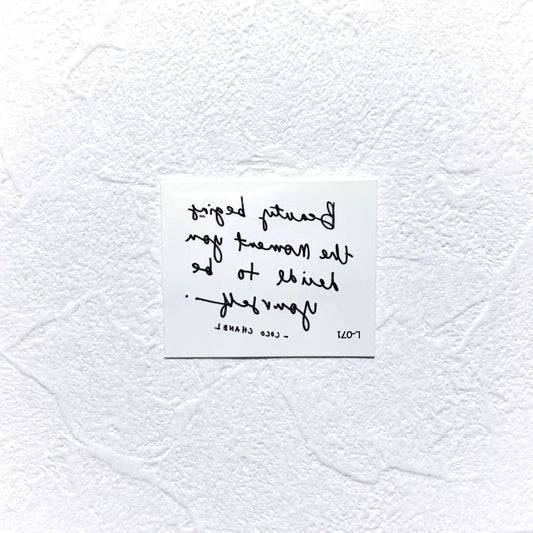 Beauty begins
the moment you
decide to be
yourself.
- COCO CHANEL
L-071